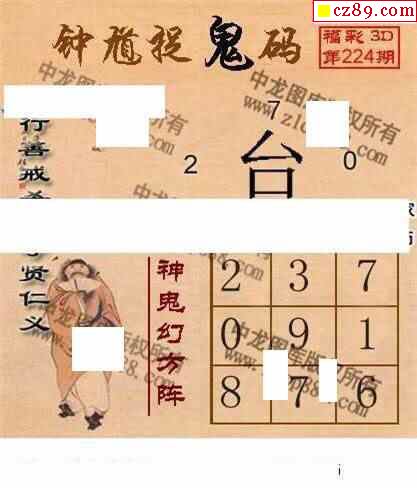 cz89.com
钟馗捉鬼码
福彩3D
第224期
7
2
台
0
行善戒杀
贤仁义
神鬼幻方阵
2 3 7
0 9 1
8 7 6
中龙图库版权所有
i